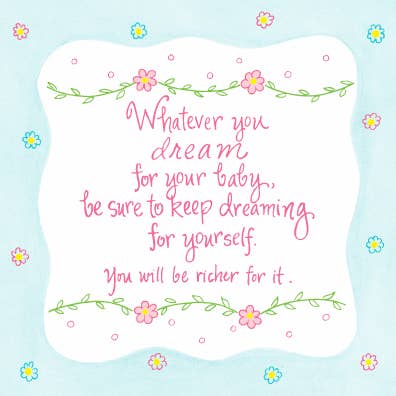 Whatever you
dream
for your baby,
be sure to keep dreaming
for yourself.
You will be richer for it.